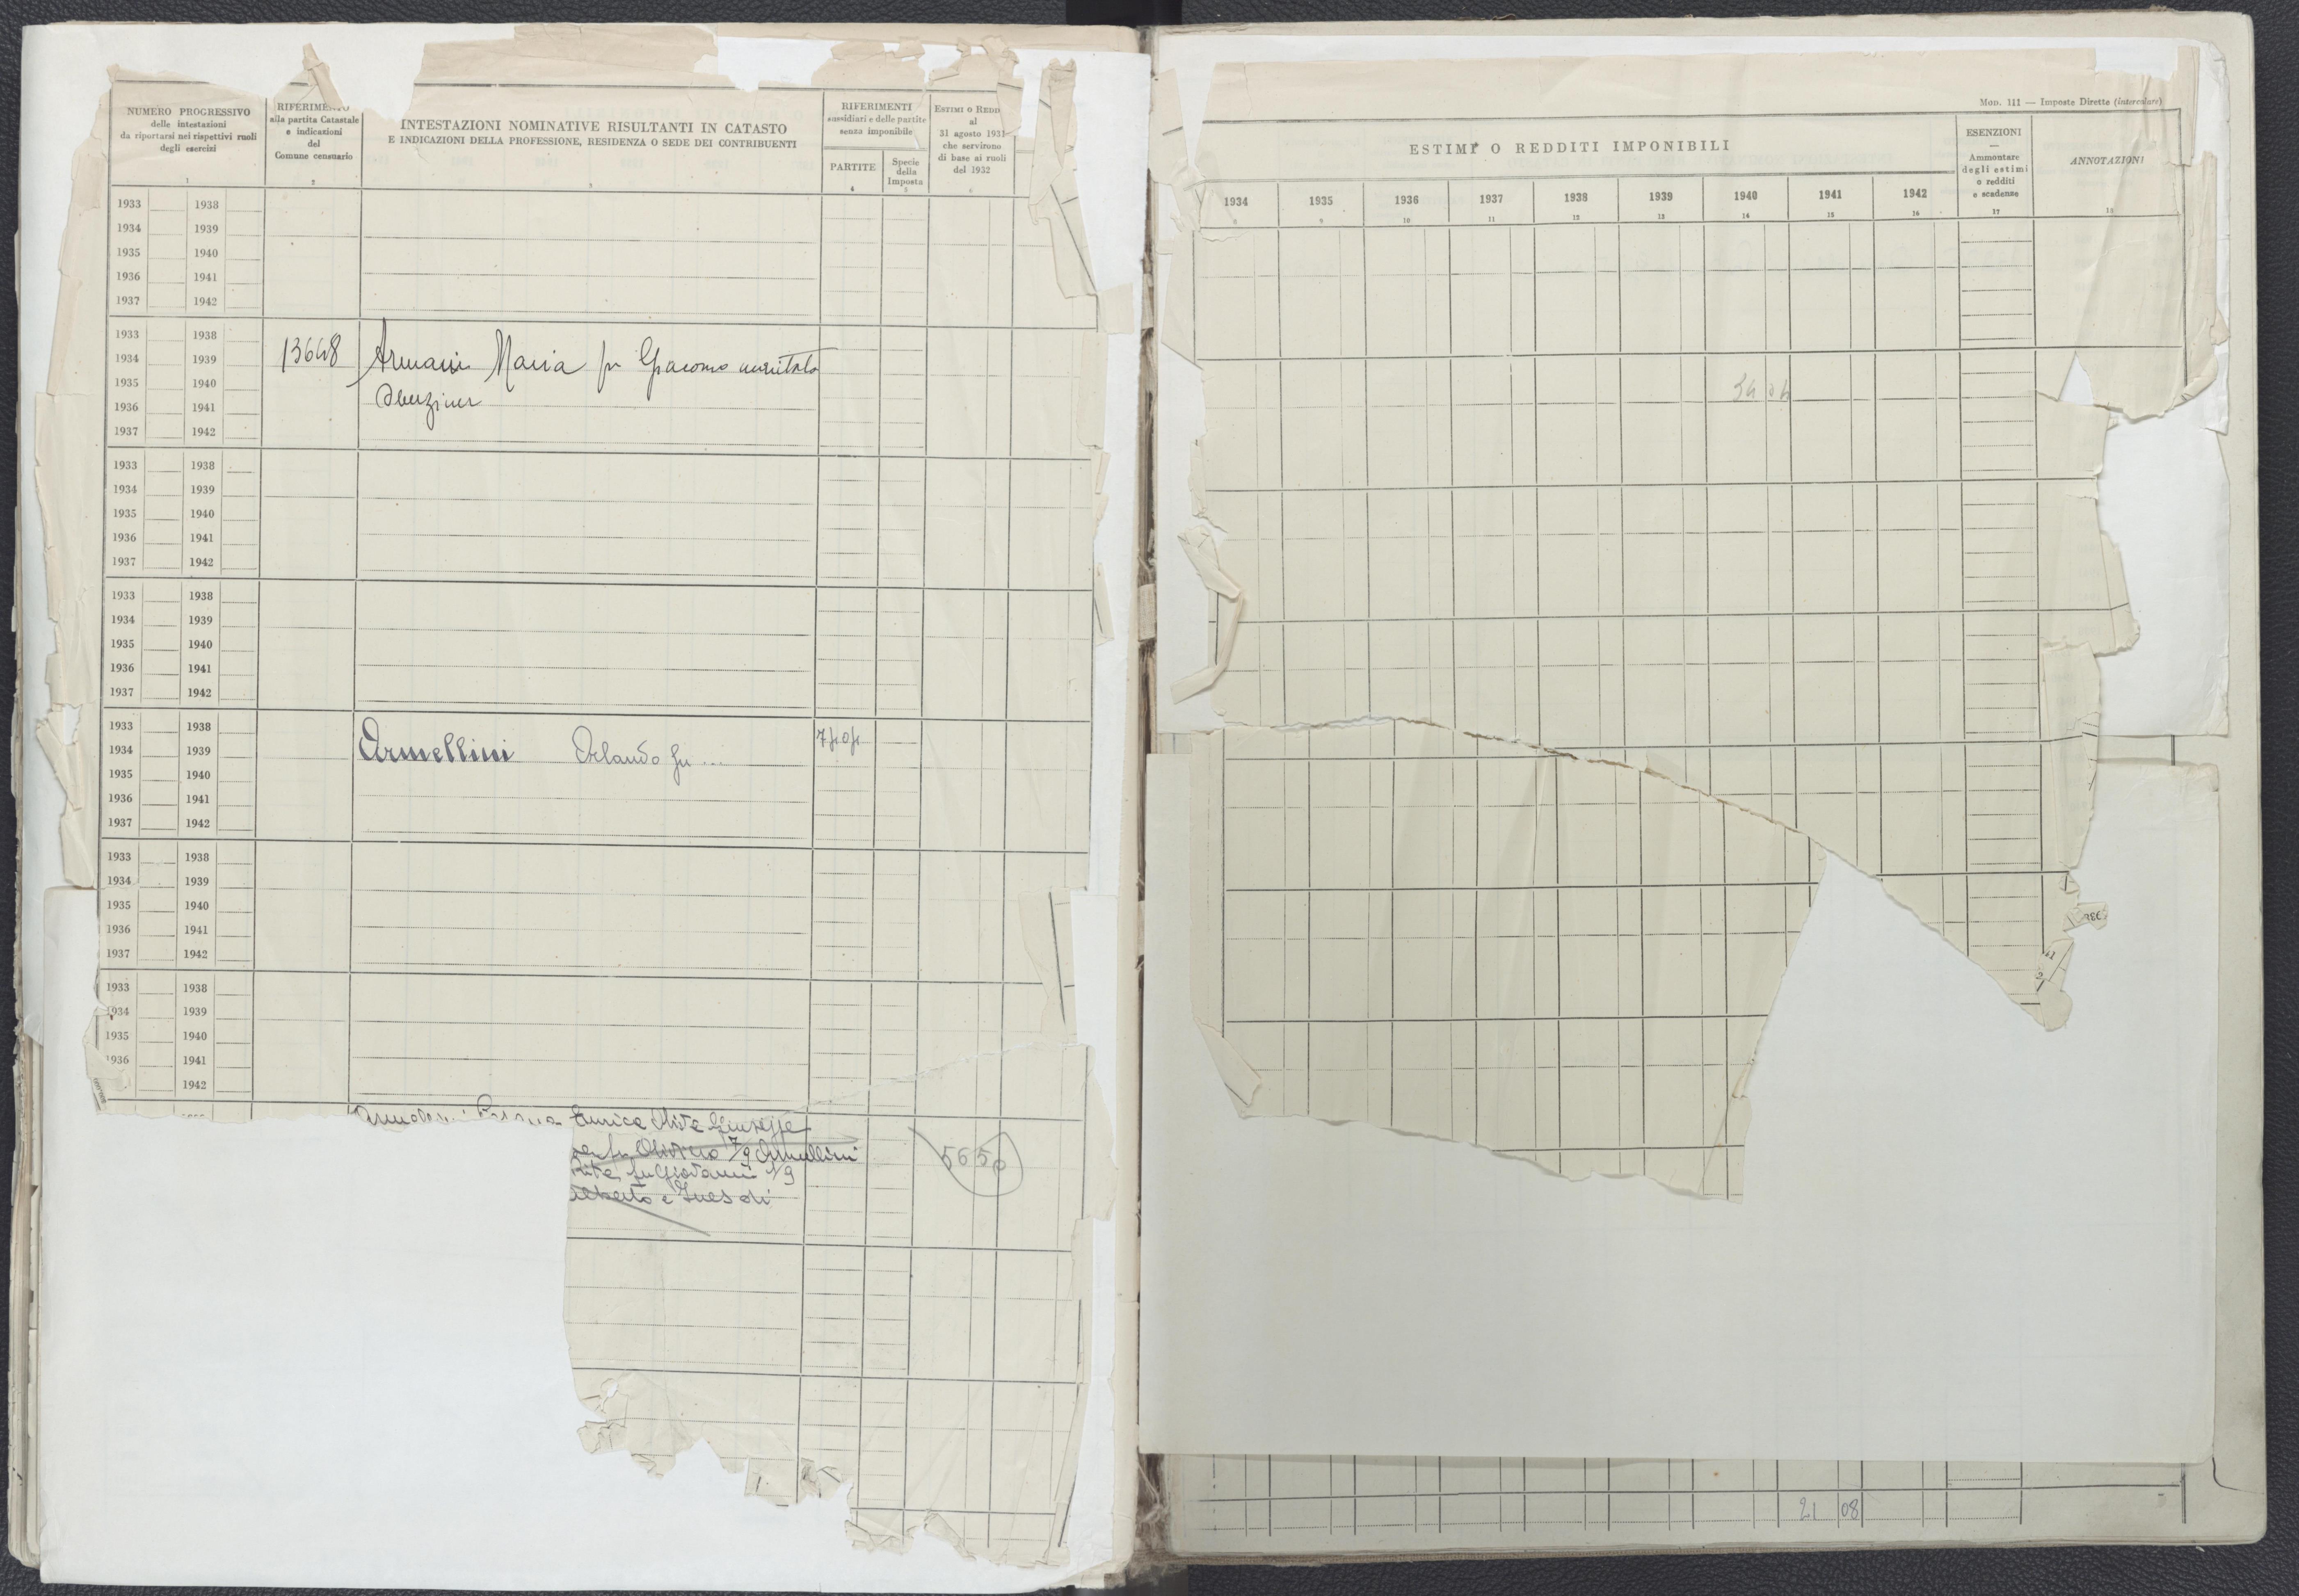 NUMERO PROGRESSIVO
delle intestazioni
da riportarsi nei rispettivi ruoli
degli esercizi
1
RIFERIMENTO
alla partita Catastale
e indicazioni
del
Comune censuario
2
INTESTAZIONI NOMINATIVE RISULTANTI IN CATASTO
E INDICAZIONI DELLA PROFESSIONE, RESIDENZA O SEDE DEI CONTRIBUENTI
3
RIFERIMENTI
sussidiari e delle partite
senza imponibile
PARTITE
4
Specie
della
Imposta
5
ESTIMI O REDD
al
31 agosto 1931
che servirono
di base ai ruoli
del 1932
6
1933 1938
1934 1939
1935 1940
1936 1941
1937 1942
1933 1938
1934 1939
1935 1940
1936 1941
1937 1942
13648 Armani Maria fu Giacomo maritata
1933 1938
1934 1939
1935 1940
1936 1941
1937 1942
1933 1938
1934 1939
1935 1940
1936 1941
1937 1942
1933 1938
1934 1939
1935 1940
1936 1941
1937 1942
Armellini Orlando fu ...
1933 1938
1934 1939
1935 1940
1936 1941
1937 1942
1933 1938
934 1939
1935 1940
1936 1941
1942
Enrica Giuseppe
fu Oliviero 7/9 Armellini
fu Giovanni 1/9
Alberto e Ines di
5650
Mod. 111 — Imposte Dirette (intercalare)
ESTIMI O REDDITI IMPONIBILI
1934 1935 1936 1937 1938 1939 1940 1941 1942
8 9 10 11 12 13 14 15 16
ESENZIONI
—
Ammontare
degli estimi
o redditi
e scadenze
17
ANNOTAZIONI
18
34 04
21 08